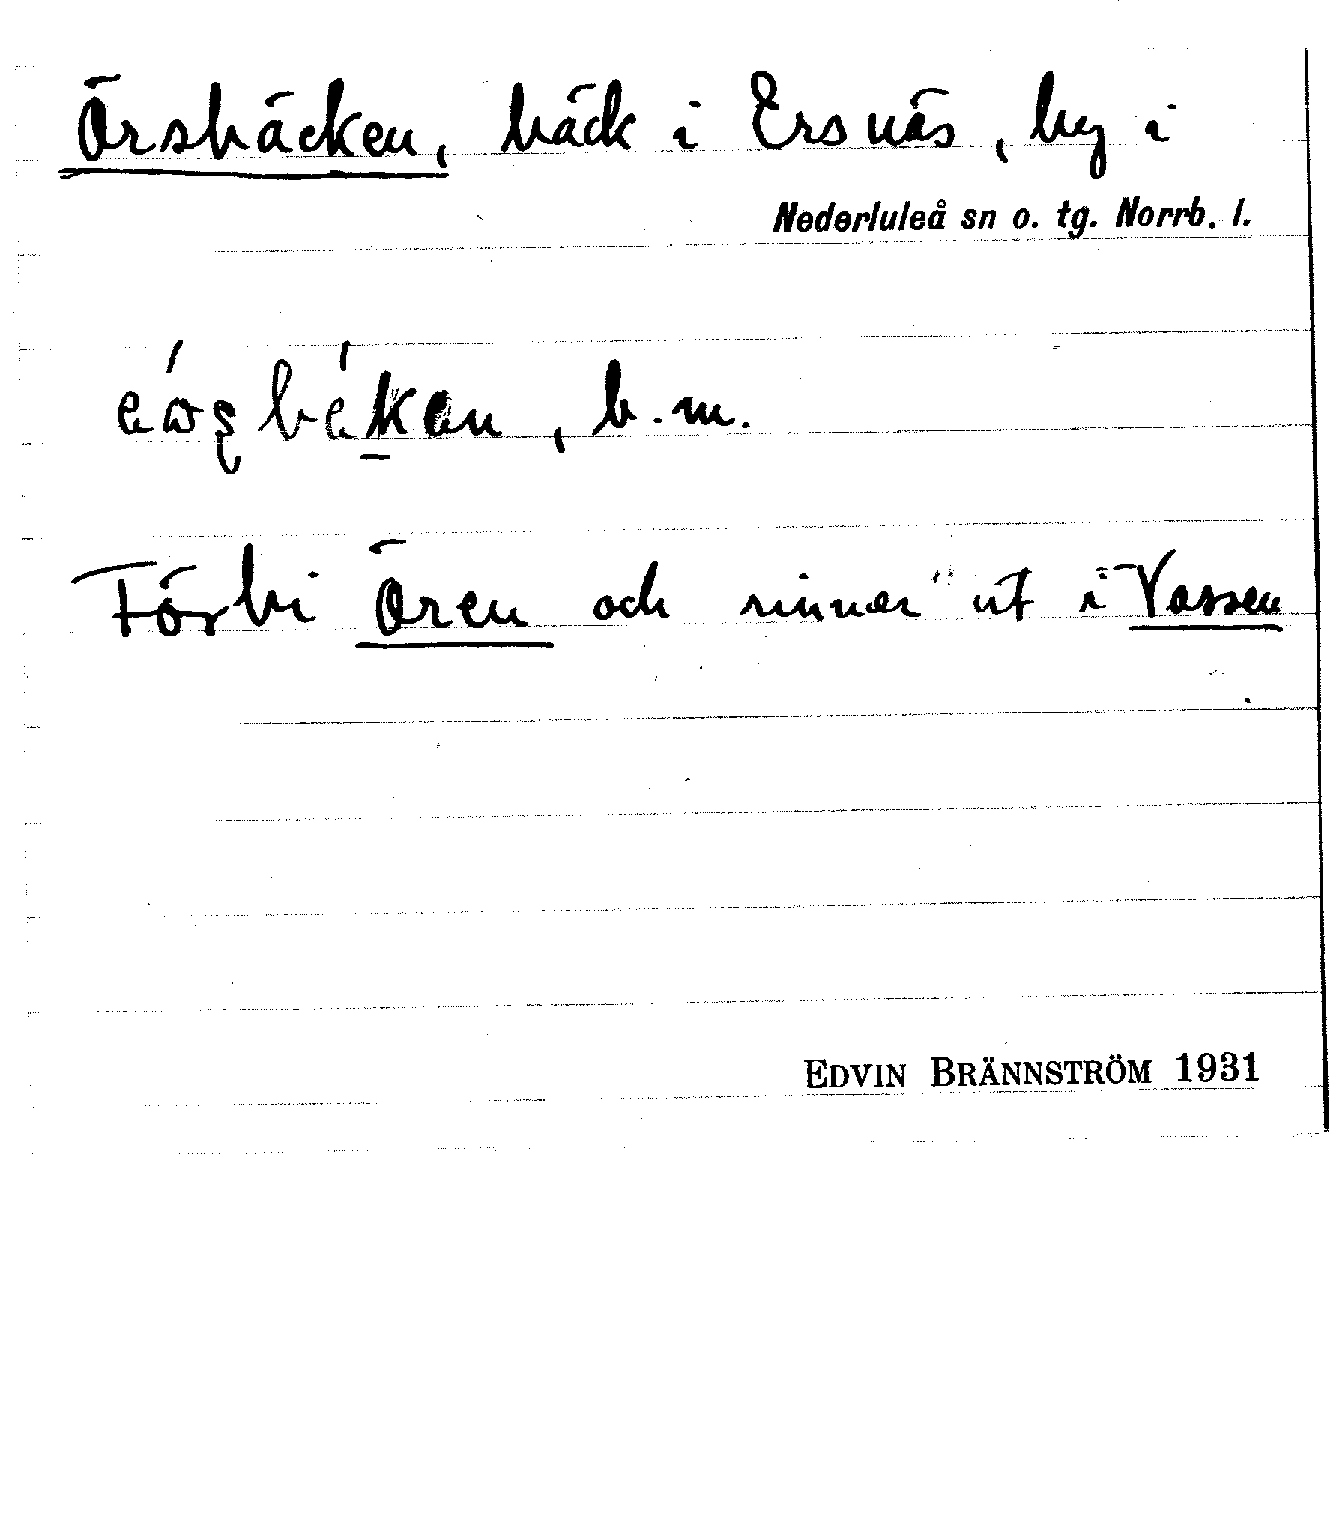 Örsbäcken, bäck i Ersnäs, by i
Nederluleå sn o. tg. Norrb. l.
, b. m.
Förbi Ören och rinner ut i Vassen
EDVIN BRÄNNSTRÖM 1931